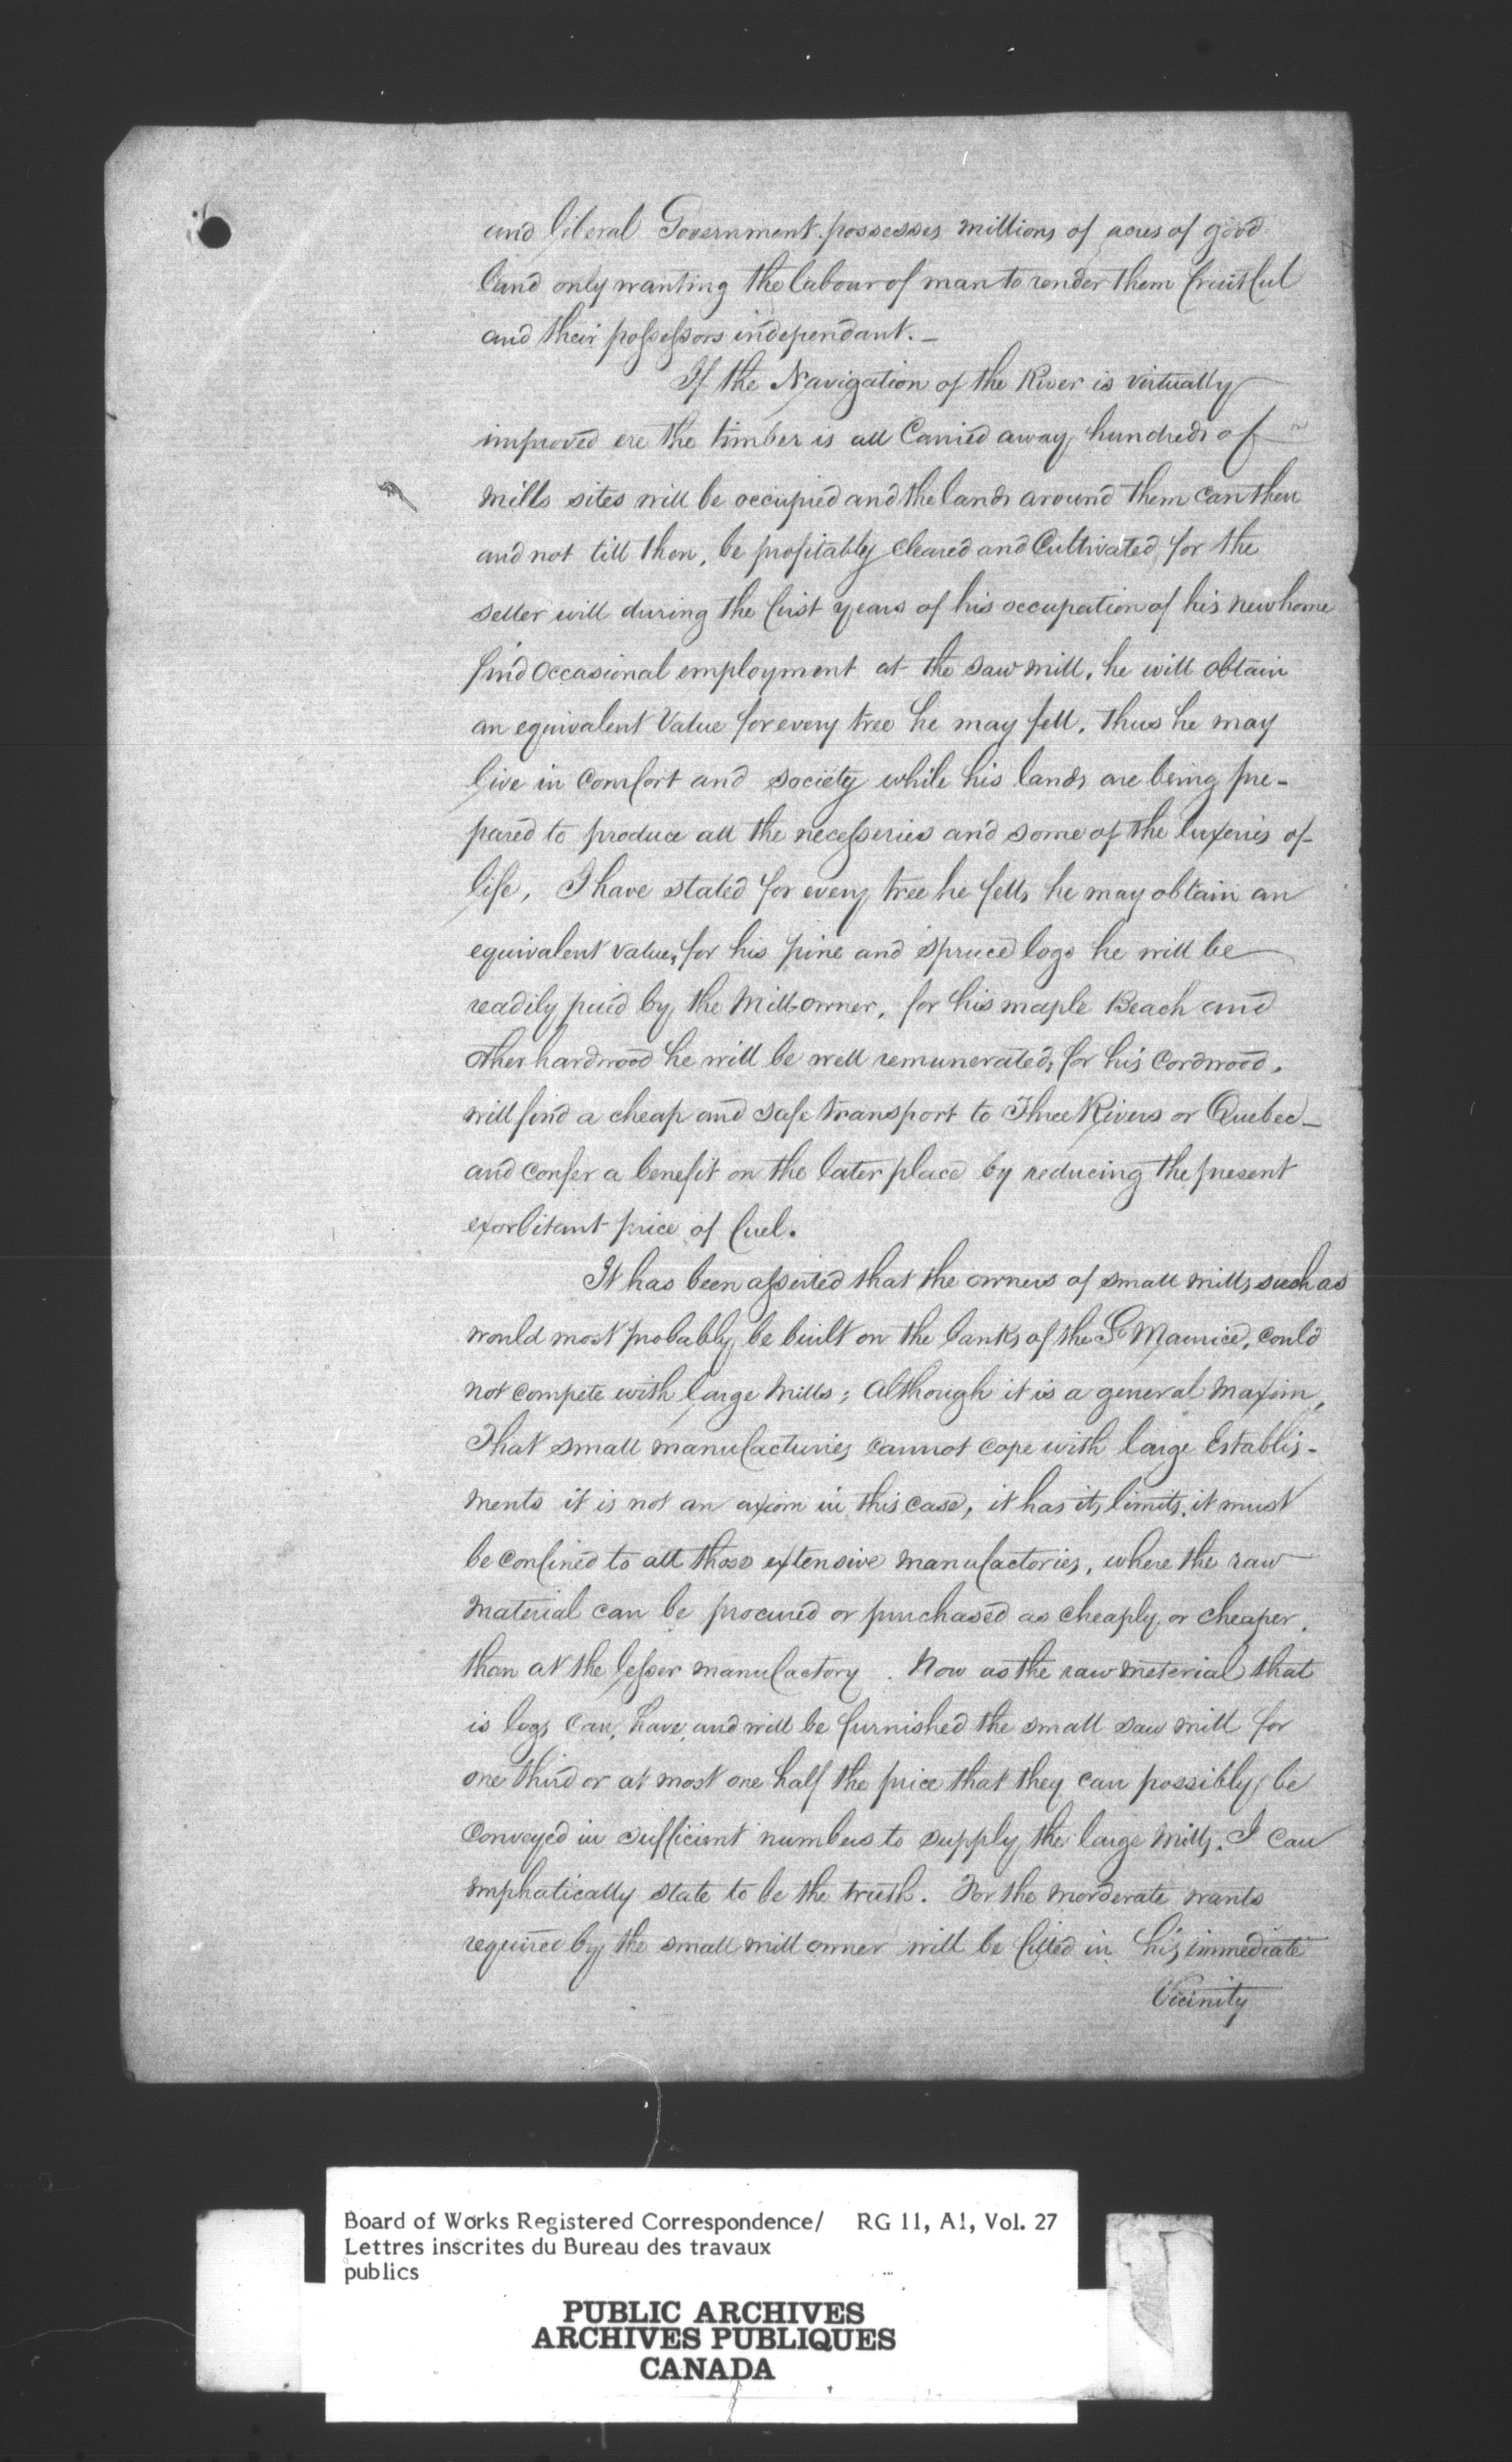 and liberal Government possesses millions of acres of good
land only wanting the labour of man to render them fruitful
and their possessors independant. –
If the Navigation of the River is virtually
improved ere the timber is all Carried away, hundreds of
Mills sites will be occupied and the lands around them can then
and not till then, be profitably cleared and Cultivated, for the
setler will during the first years of his occupation of his new home
find occasional employment at the saw mill, he will obtain
an equivalent Value for every tree he may fell, thus he may
live in Comfort and society while his lands are being pre-
pared to produce all the necesseries and some of the luxeries of
life, I have stated for every tree he fells he may obtain an
equivalent value, for his pine and spruce logs he will be
readily paid by the Mill-owner, for his maple Beach and
other hardwood he will be well remunerated, for his Cordwood,
will find a cheap and safe transport to Three Rivers or Quebec –
and confer a benefit on the later place by reducing the present
exorbitant price of fuel.
It has been asserted that the owners of small mills such as
would most probably be built on the banks of the St Maurice, could
not compete with large Mills; Although it is a general Maxim,
That small manufacturies cannot cope with large Establis-
ments it is not an axiom in this case, it has its limits, it must
be confined to all those extensive Manufactories, where the raw
Material can be procured or purchased as cheaply or cheaper,
than at the lesser manufactory. Now as the raw meterial that
is logs Can, have, and will be furnished the small saw mill for
one third or at most one half the price that they can possibly be
Conveyed in sufficient numbers to supply the large Mills. I can
emphatically state to be the truth. For the morderate wants
required by the small mill owner will be filled in his immediate
Vicinity
Board of Works Registered Correspondence/ RG 11, A1, Vol. 27
Lettres inscrites du Bureau des travaux
publics
PUBLIC ARCHIVES
ARCHIVES PUBLIQUES
CANADA